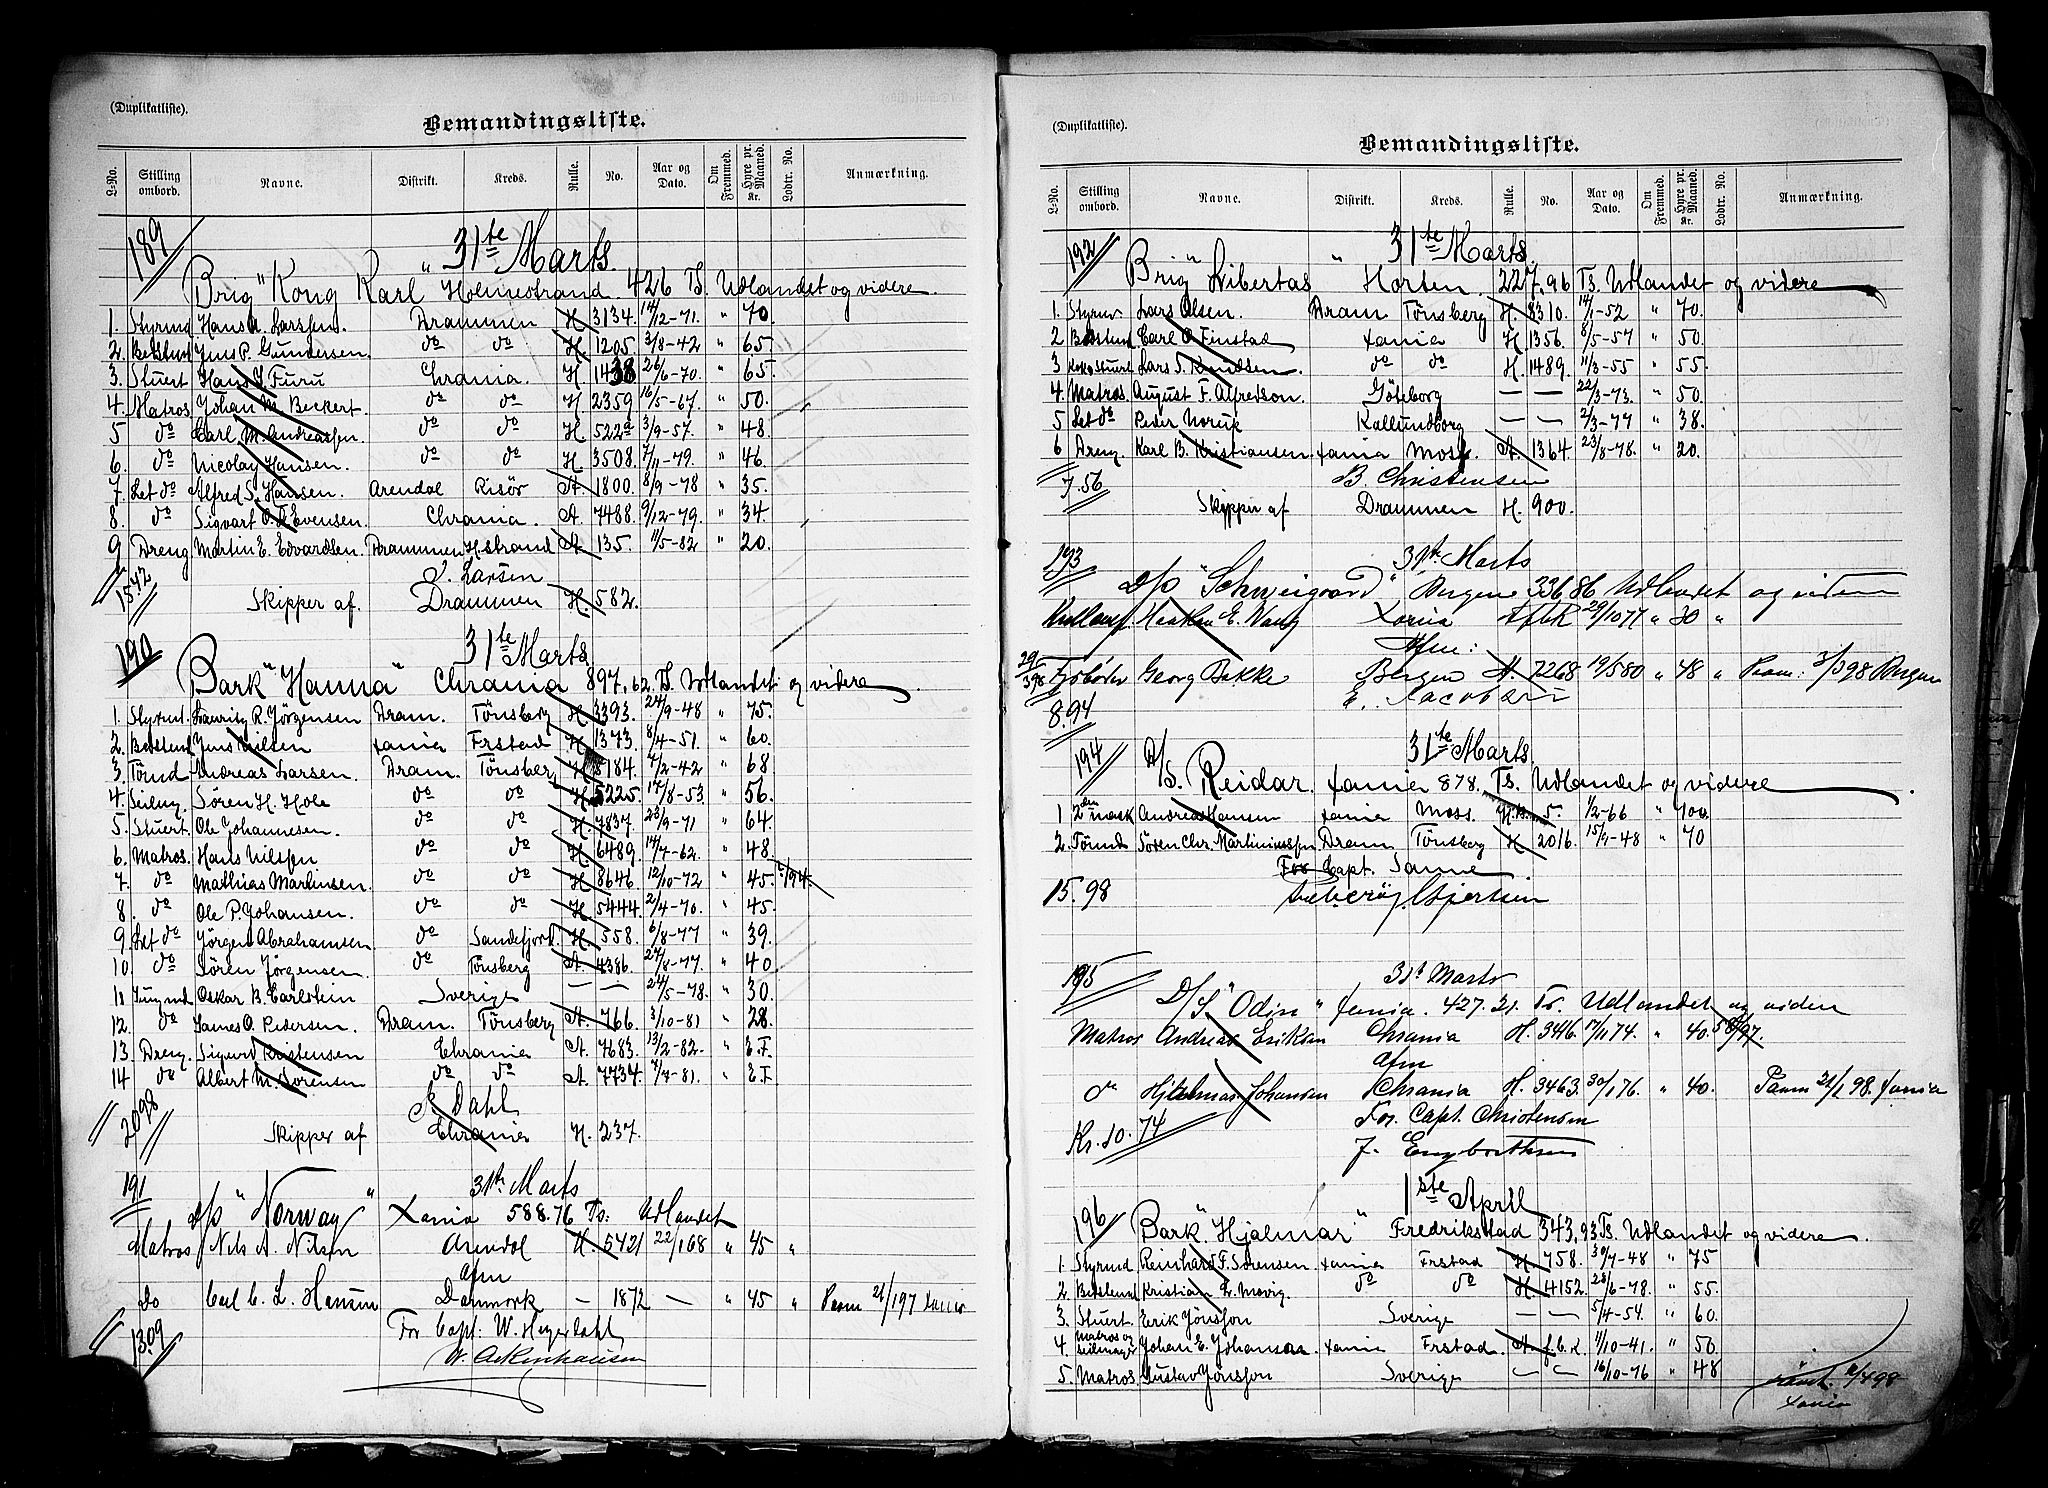 (Duplikatliste).
Bemandingsliste.
L-No. Stilling ombord. Navne. Distrikt. Kreds. Rulle. No. Aar og Dato. Om Fremmed. Hyre pr. Maaned. Kr. Lodtr. No. Anmærkning.
189 31te Marts
Brig "Kong Karl" Holmestrand 426 Ts. Udlandet og videre
1. Styrmd Hans A. Larssen. Drammen H. 3134. 14/12-71. " 70.
2. Bedstmd Jens P. Gundersen. do do H 1205. 3/8-42 " 65
3. Stuert Hans J. Furu Chrania. H 1438 26/6-70. " 65.
4. Matros Johan M. Beckert. do do H 2359 16/5-67. " 50.
5 do Carl M. Andreassen. do do H. 5229 3/9-57. " 48.
6. do Nicolay Hansen. do do H. 3508. 7/11-79. " 46.
7. Let do Alfred S. Hansen. Arendal Risör A. 1800. 8/9-78 " 35.
8. do Sigvart O. Evensen. Chrania. A. 7488. 9/12-79. " 34.
9 Dreng Martin E. Edvardsen. Drammen H.strand A. 135. 11/5-82 " 20.
J. Larsen
15.42 Skipper af. Drammen H. 582.
190 31te Marts
Bark "Hanna" Chrania 897.62 Ts. Udlandet og videre
1. Styrmd. Lauritz R. Jörgensen Dram. Tönsberg H 3393. 24/9-48 " 75.
2. Bedstmd Jens Nilsen xania Frstad H 1373. 8/4-51. " 60.
3. Tömd Andreas Larsen. Dram. Tönsberg H 5184. 4/2-42 " 68
4. Seilm. Sören H. Hole do do H 5225. 17/8-53. " 56.
5. Stuert. Ole Johannesen. do do H. 7837. 23/9-71 " 64
6. Matros. Hans Nilssen do do H 6489. 14/7-62. " 48.
7. do Mathias Martinsen. do do H 8646. 12/10-72 " 45. 194.
8. do Ole P. Johansen. do do H 5444. 2/4-70. " 45.
9. Let do Jörgen Abrahamsen do Sandefjord. H. 558. 6/8-77 " 39.
10. do Sören Jörgensen. do Tönsberg A. 4386. 27/8-77. " 40
11 Jungmd Oskar B. Carlstein Sverige — — 24/5-78. " 30.
12. do James O. Pedersen. Dram. Tönsberg A. 766. 3/10-81 " 28.
13. Dreng. Sigurd Kristensen Chrania A. 7683. 13/2-82. " E.F.
14 do Albert M. Sörensen do do A 7734. 7/7-81. " E.F
A. Dahl
20.98 Skipper af Chrania H. 237.
191 31te Marts
D/S "Norway" Xania 588.76 Ts: Udlandet
Matros Nils A. Nilsen Arendal H. 5421 22/1 68 " 45 "
Afm
Do Carl C. L. Hansen Danmark — 1872 — " 45 " Paam 21/1 97 Xania
For Capt: W. Heyerdahl
13.09 W. Ackenhausen
(Duplikatliste).
Bemandingsliste.
L-No. Stilling ombord. Navne. Distrikt. Kreds. Rulle. No. Aar og Dato. Om Fremmed. Hyre pr. Maaned. Kr. Lodtr. No. Anmærkning.
192 31te Marts
Brig "Libertas" Horten. 227.96 Ts. Udlandet og videre
1. Styrm. Lars Olsen. Dram Tönsberg H. 8310. 14/1-52 " 70.
2 Bedstmd Carl O. Finstad xania H 1356. 8/5-57 " 50.
3 Kok o Stuert Lars S. Knudsen. do do H. 1489. 11/3-55 " 55.
4. Matros. August F. Alfredson. Göteborg — — 22/3-73. " 50.
5 Let do Peder Norup Kallundborg — — 2/3-77 " 38.
6 Dreng. Karl B. Kristiansen xania Moss. A. 1364. 23/8-78. " 20.
7.56 B. Christensen
Skipper af Drammen H. 900.
193 31te Marts
D/S "Schweigaard" Bergen 336.86 Udlandet og videre
Haakon E. Wang Xania 29/10 77 " 30 "
Afm:
Fyrböder Georg Bakke Bergen A. 7268 19/5 80 " 48 " Paam: 3/3 98 Bergen
E. Jacobsen
8.94
194 31te Marts
D/S. Reidar. xania 878. Ts. Udlandet og videre
1 2den mask Andreas Hansen xania Moss. 5. 1/2-66 " 100.
2. Tömmd Sören Chr. Martiniussen Dram Tönsberg H 2016. 15/9-48 " 70
For Capt. Sanne
15.98
195 31te Marts
D/S "Odin" Xania. 427.21. Ts. Udlandet og viden
Matros Andreas Eriksen Chrania H. 3416. 17/11 74. " 40. 58/97.
Afm
do Hjalmar Johansen Chrania H. 3463. 30/1 76. " 40. Paam 21/1 98. Xania
For. Capt. Christensen
Kr. 10.74 J. Engbretsen
196 1ste April
Bark "Hjalmar" Fredrikstad 343,93 Ts. Udlandet og videre
1. Styrmd Reinhard F. Sörensen. xania Frstad H 758. 30/7-48 " 75
2. Bedstmd Kristian L. Movig. do do H 4152. 28/6-78. " 55.
3. Stuert. Erik Jönsson Sverige — — 5/4-54. " 60.
4. Matros og seilmager Johan E. Johansen. xania Frstad. A f.b.r. 11/10-41. " 50.
5. Matros. Gustav Jönsson Sverige — — 16/10-76 " 48
4 98 Xania